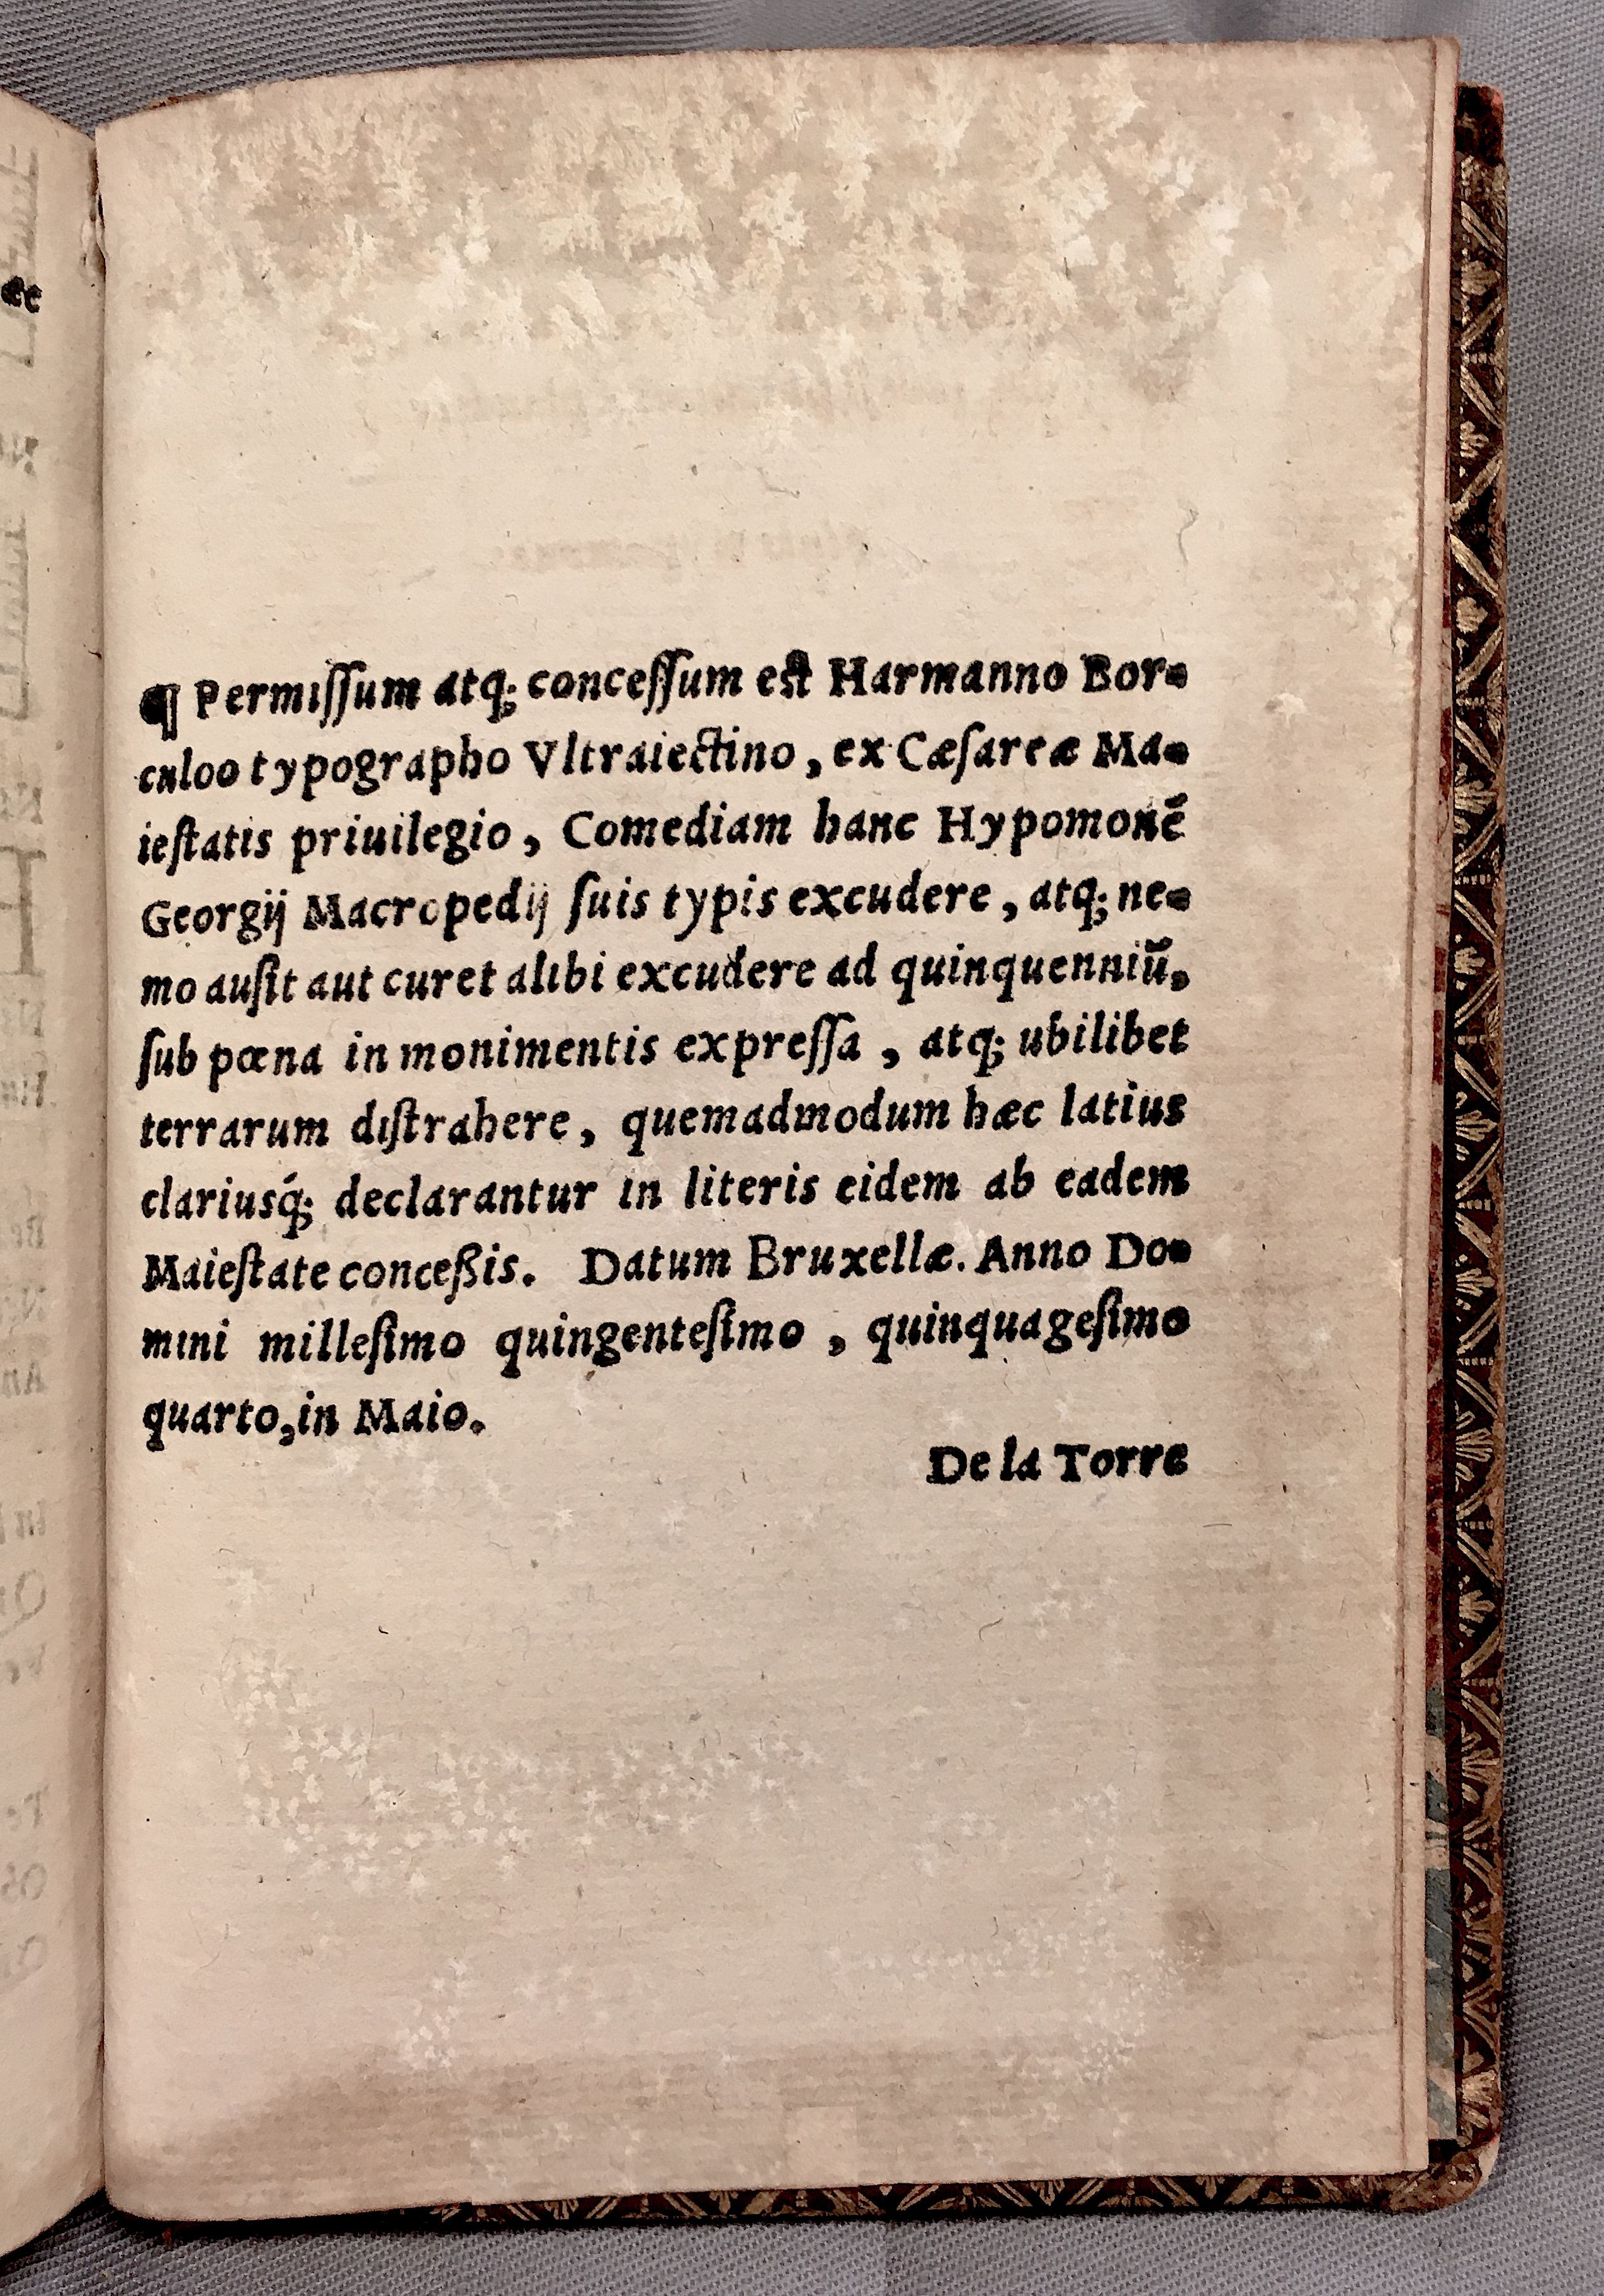 ¶ Permiſſum atq; conceſſum est Harmanno Bor-
culoo typographo Vltraiectino, ex Cæſareæ Ma-
ieſtatis priuilegio, Comediam hanc Hypomonē
Georgij Macropedij ſuis typis excudere, atq; ne-
mo auſit aut curet alibi excudere ad quinquenniū,
ſub pœna in monimentis expreſſa, atq; ubilibet
terrarum diſtrahere, quemadmodum hæc latius
clariusq́; declarantur in literis eidem ab eadem
Maieſtate conceßis. Datum Bruxellæ. Anno Do-
mini milleſimo quingenteſimo, quinquageſimo
quarto, in Maio.
De la Torre